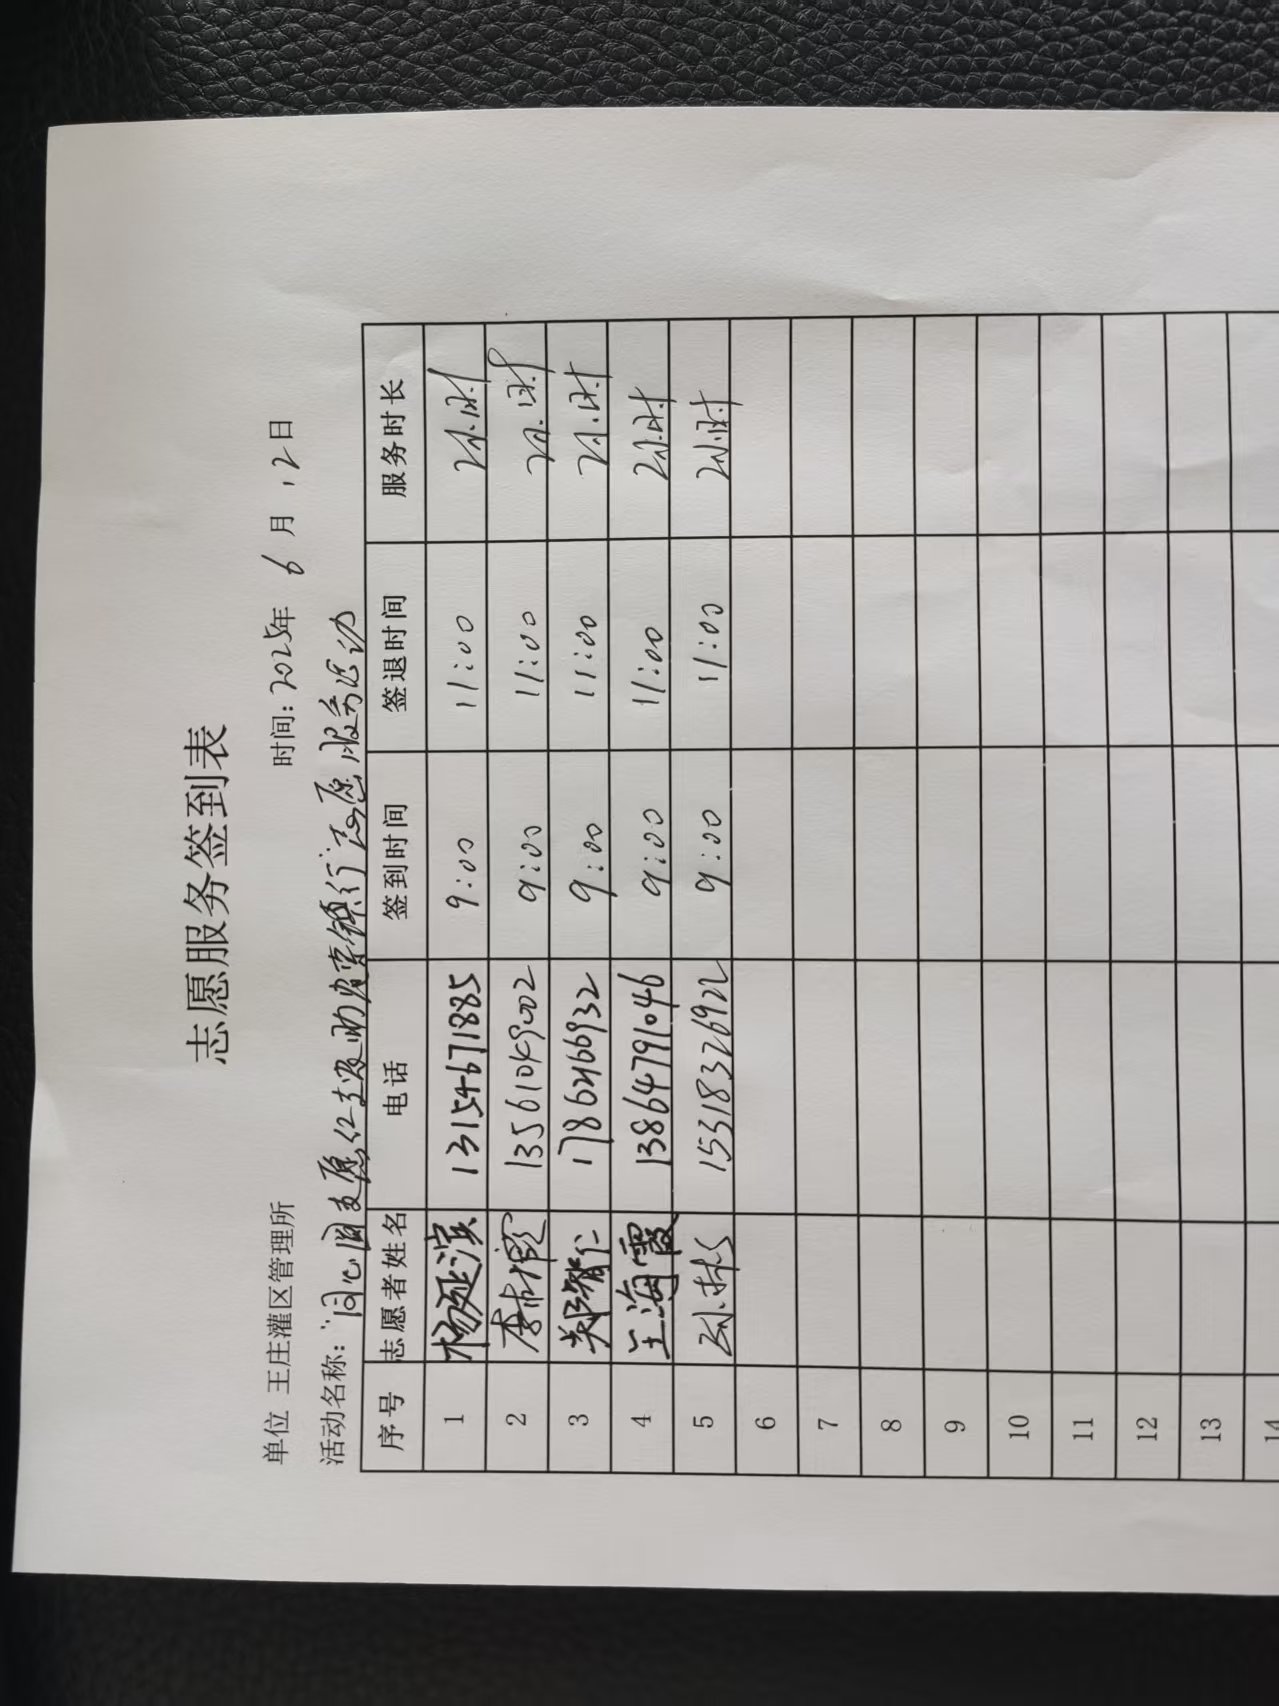 志愿服务签到表
单位 王庄灌区管理所 时间: 2025年 6 月 12 日
活动名称: "同心圆支愿,仁志爱助青镇行"志愿服务活动
序号 志愿者姓名 电话 签到时间 签退时间 服务时长
1 杨延滨 13154671885 9:00 11:00 2小时
2 李 13561049002 9:00 11:00 2小时
3 郑智仁 17862166932 9:00 11:00 2小时
4 王海霞 13864791046 9:00 11:00 2小时
5 孙林 15318326922 9:00 11:00 2小时
6
7
8
9
10
11
12
13
14